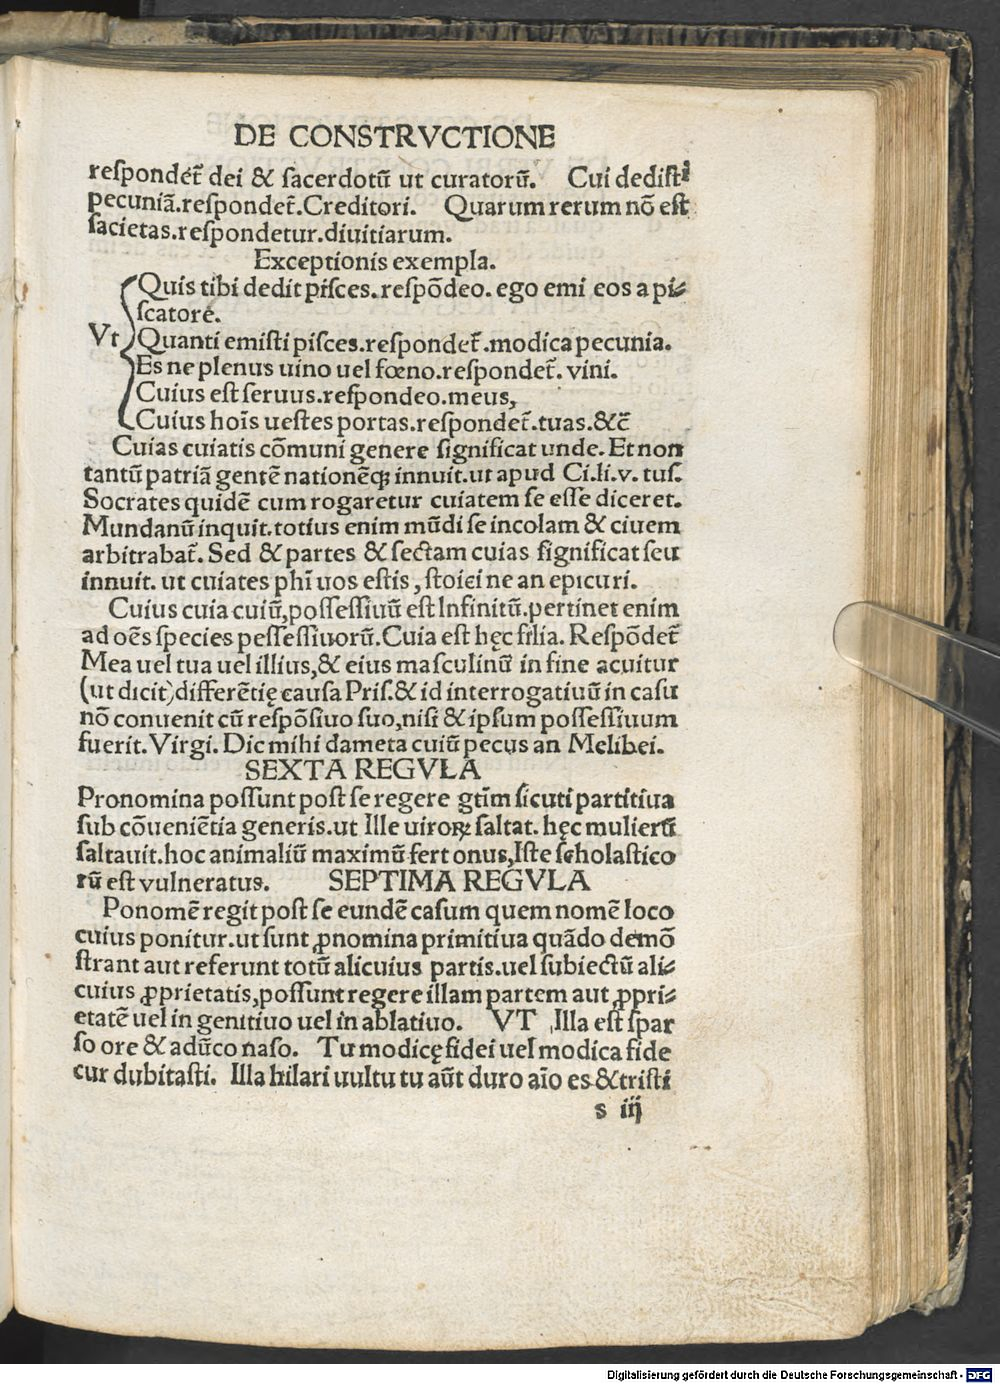 DE CONSTRVCTIONE
respondet̃ dei & sacerdotū ut curatorū. Cui dedisti
pecuniã.respondet̃.Creditori. Quarum rerum nõ est
sacietas.respondetur.diuitiarum.
Exceptionis exempla.
Quis tibi dedit pisces.respõdeo. ego emi eos a pi⸗
scatore.
Vt Quanti emisti pisces.respondet̃.modica pecunia.
Es ne plenus uino uel fœno.respondet̃. vini.
Cuius est seruus.respondeo.meus,
Cuius hoĩs uestes portas.respondet̃.tuas.&c̃
Cuias cuiatis cõmuni genere significat unde. Et non
tantū patriã gentẽ nationẽq; innuit.ut apud Ci.li.v. tus.
Socrates quidẽ cum rogaretur cuiatem se esse diceret.
Mundanū inquit.totius enim mūdi se incolam & ciuem
arbitrabat̃. Sed & partes & sectam cuias significat seu
innuit. ut cuiates phĩ uos estis, stoici ne an epicuri.
Cuius cuia cuiū,possessiuū est Infinitū.pertinet enim
ad oẽs species pessessiuorū.Cuia est hęc filia. Respõdet̃
Mea uel tua uel illius,& eius masculinū in fine acuitur
(ut dicit)differẽtię causa Pris.& id interrogatiuū in casu
nõ conuenit cū respõsiuo suo,nisi & ipsum possessiuum
fuerit.Virgi. Dic mihi dameta cuiū pecus an Melibei.
SEXTA REGVLA
Pronomina possunt post se regere gtĩm sicuti partitiua
sub cõueniẽtia generis.ut Ille uiroꝝ saltat. hęc mulierū
saltauit.hoc animaliū maximū fert onus,Iste scholastico
rū est vulneratus. SEPTIMA REGVLA
Ponomẽ regit post se eundẽ casum quem nomẽ loco
cuius ponitur.ut sunt ꝓnomina primitiua quãdo demõ
strant aut referunt totū alicuius partis.uel subiectū ali⸗
cuius ꝓprietatis,possunt regere illam partem aut ꝓpri⸗
etatẽ uel in genitiuo uel in ablatiuo. VT Illa est spar
so ore & adūco naso. Tu modicę fidei uel modica fide
cur dubitasti. Illa hilari uultu tu aūt duro aĩo es & tristi
s iij
Digitalisierung gefördert durch die Deutsche Forschungsgemeinschaft - DFG